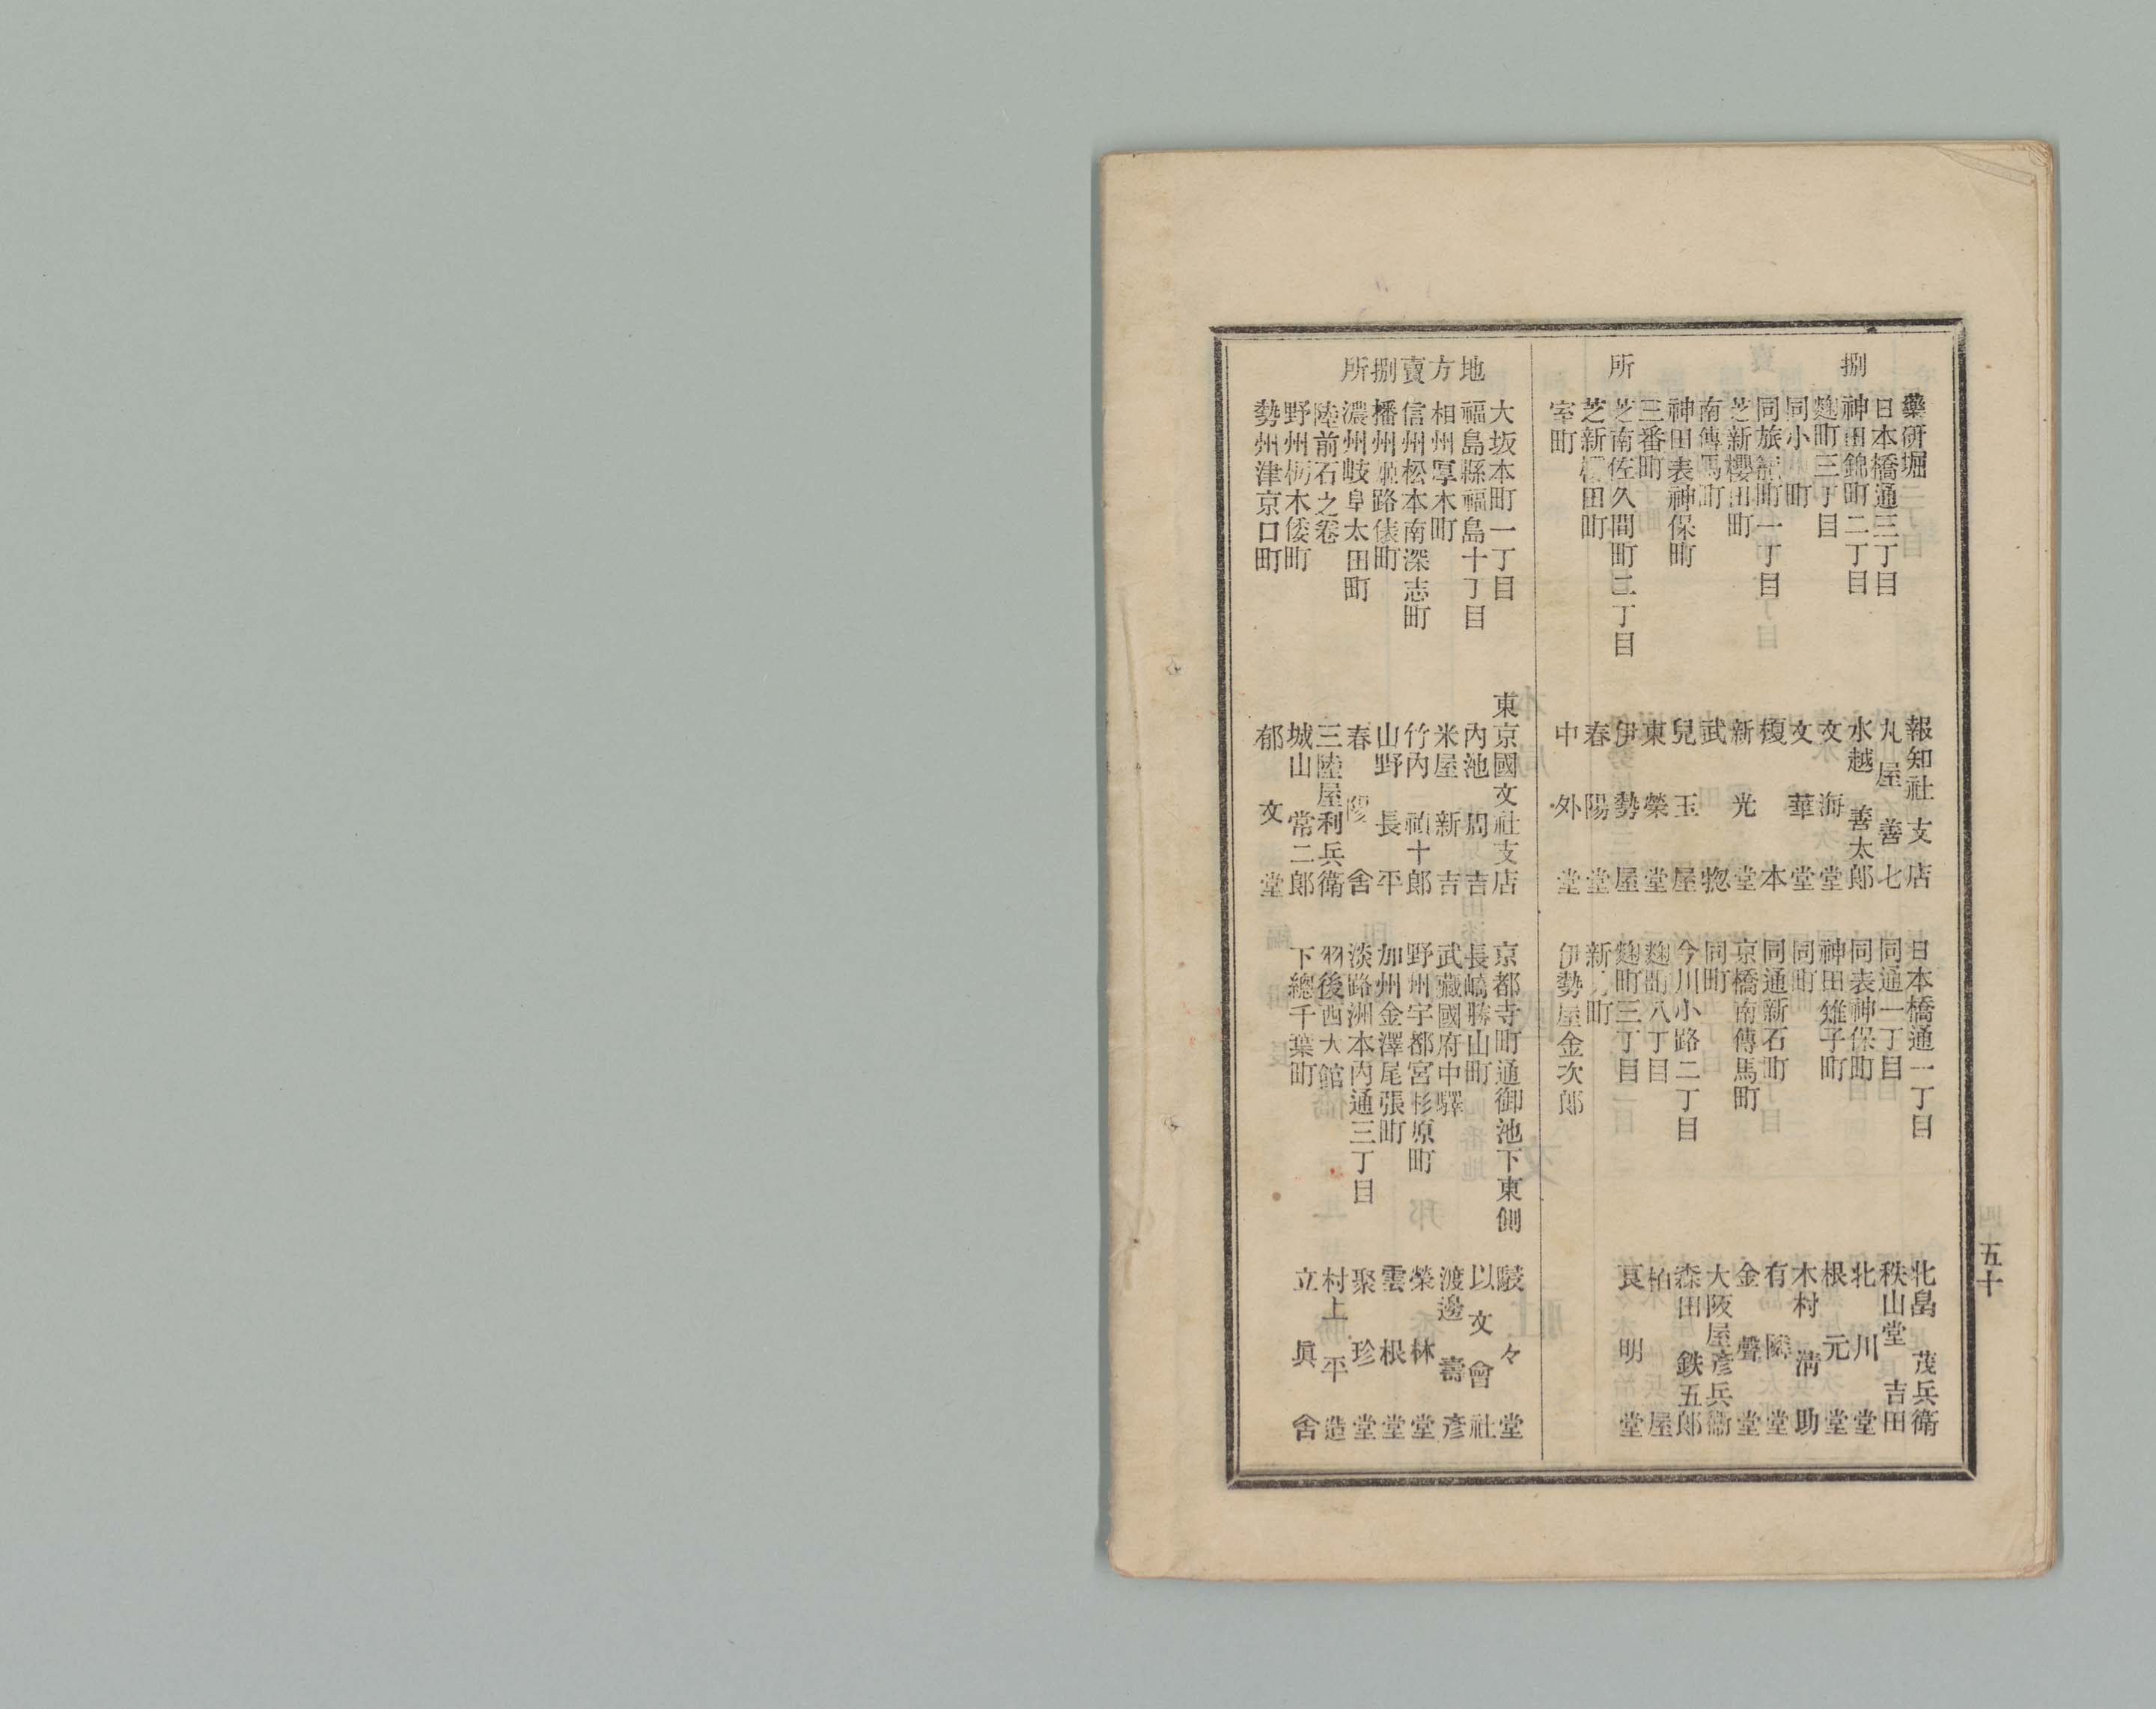 捌
所
藥研堀　報知社支店
日本橋通三丁目　丸屋善七
神田錦町二丁目　水越善太郎
麹町三丁目　文海堂
同小町　文華堂
同旅籠町一丁目　榎本
芝新櫻田町　新光堂
南傳馬町　武惣
神田表神保町　兒玉屋
三番町　東榮堂
芝南佐久間町二丁目　伊勢屋
芝新櫻田町　春陽堂
室町　中外堂
日本橋通一丁目　北畠茂兵衛
同通一丁目　秩山堂吉田
同表神保町　北川堂
神田雉子町　根元堂
同町　木村淸助
同通新石町　有隣堂
京橋南傳馬町　金聲堂
同町　大阪屋彥兵衞
今川小路二丁目　森田鉄五郎
麹町八丁目　柏屋
麹町三丁目　良明堂
新町
伊勢屋金次郎
地方賣捌所
大坂本町一丁目　東京國文社支店
福島縣福島十丁目　內池周吉
相州厚木町　米屋新吉
信州松本南深志町　竹內禎十郎
播州姬路俵町　山野長平
濃州岐阜太田町　春陽舍
陸前石之卷　三陸屋利兵衛
野州栃木倭町　城山常二郎
勢州津京口町　郁文堂
京都寺町通御池下東側　駸々堂
長嶋勝山町　以文會社
武藏國府中驛　渡邊壽彥
野州宇都宮杉原町　榮林堂
加州金澤尾張町　雲根堂
淡路洲本內通三丁目　聚珍堂
羽後西大館　村上平造
下總千葉町　立眞舍
五十